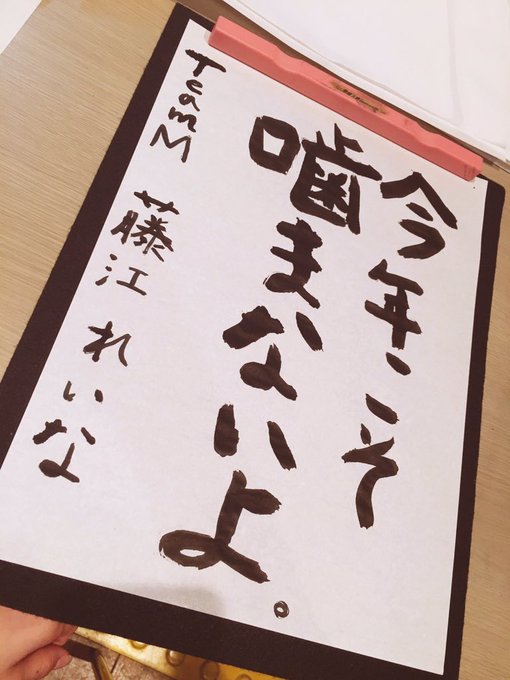 今年こそ
噛まないよ。
TeamM 藤江れいな